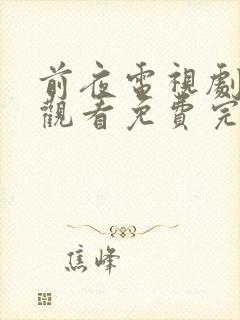 前夜電視劇
觀看免費完
焦峰